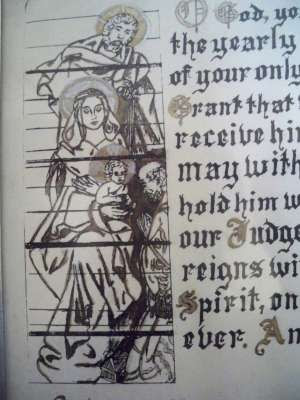 O God, yo
the yearly
of your only
Grant that
receive hi
may with
hold him w
our Judge
reigns wi
Spirit, on
ever. Am